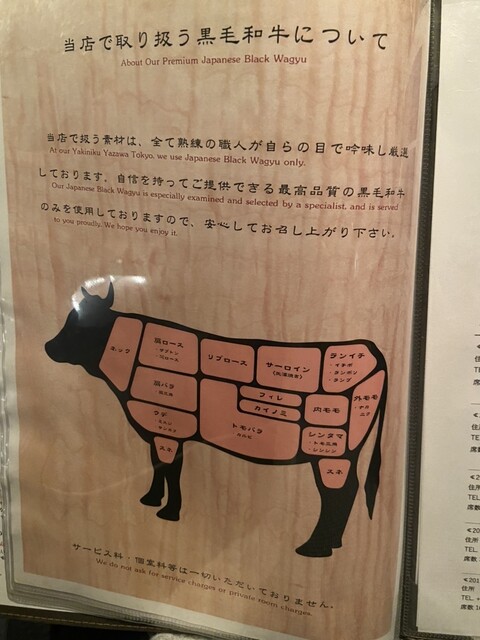 当店で取り扱う黒毛和牛について
About Our Premium Japanese Black Wagyu
当店で扱う素材は、全て熟練の職人が自らの目で吟味し厳選
At our Yakiniku Yazawa Tokyo, we use Japanese Black Wagyu only.
しております。自信を持ってご提供できる最高品質の黒毛和牛
Our Japanese Black Wagyu is especially examined and selected by a specialist, and is served
のみを使用しておりますので、安心してお召し上がり下さい。
to you proudly. We hope you enjoy it.
ネック
肩ロース
リブロース
サーロイン
ランイチ
・イチボ
・ランプ
肩バラ
フィレ
カイノミ
内モモ
外モモ
ウデ
トモバラ
カルビ
シンタマ
・トモ三角
・シンシン
スネ
スネ
サービス料・個室料等は一切いただいておりません。
We do not ask for service charges or private room charges.
住所
TEL.
席数
住所
TEL.
席数